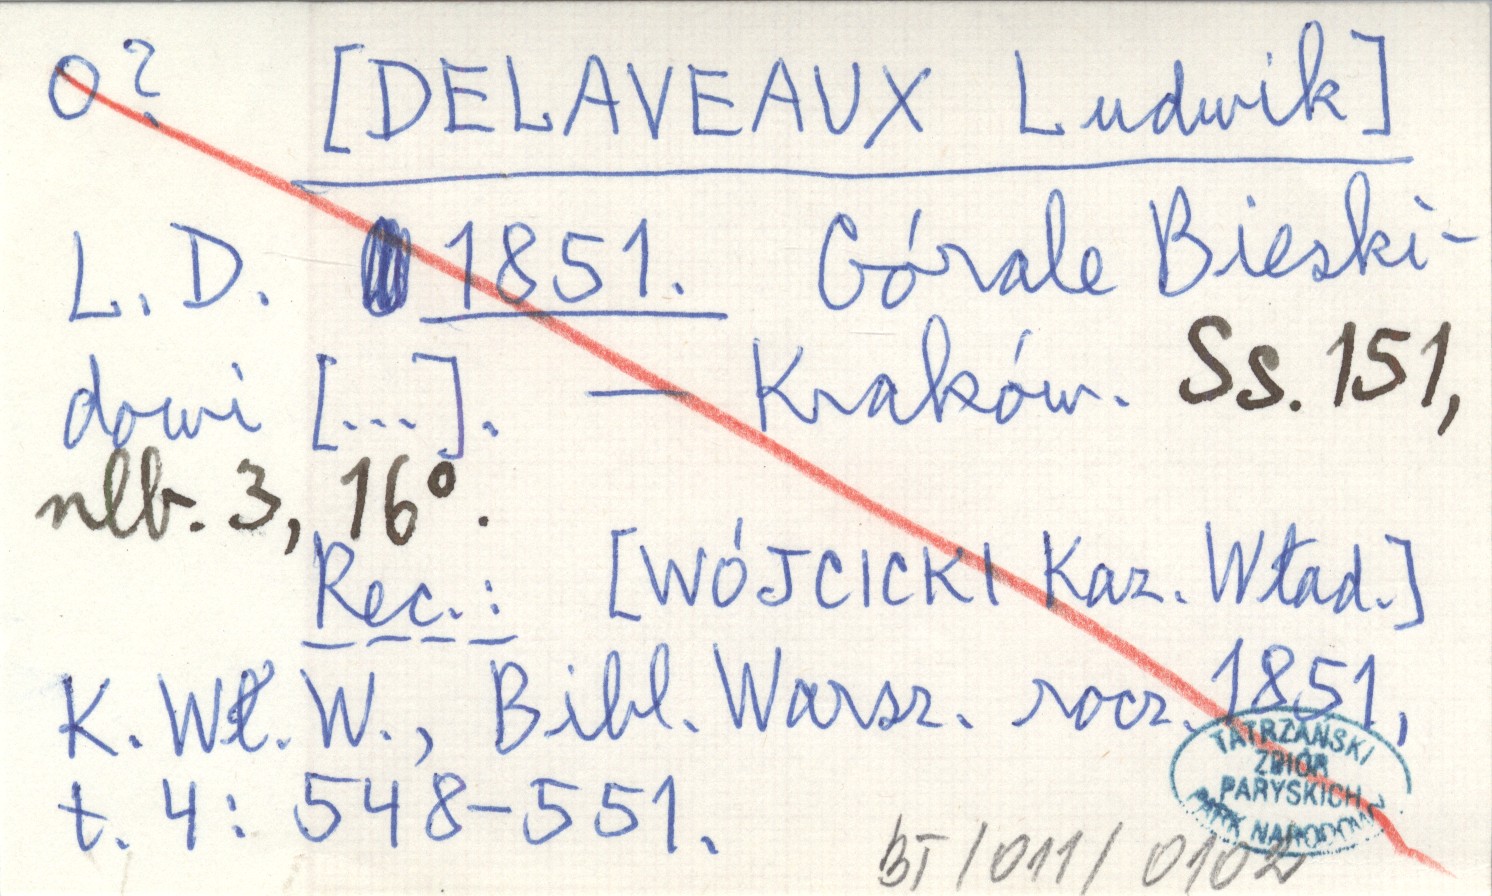 O? [DELAVEAUX Ludwik]
L. D. 1851. Górale Bieski-
dowi [...]. — Kraków. Ss. 151,
nlb. 3, 16°.
Rec.: [WÓJCICKI Kaz. Wład.]
K. Wł. W., Bibl. Warsz. rocz. 1851,
t. 4: 548-551.
TATRZAŃSKI
ZBIÓR
PARYSKICH
PARK NARODOWY
BT/011/0102